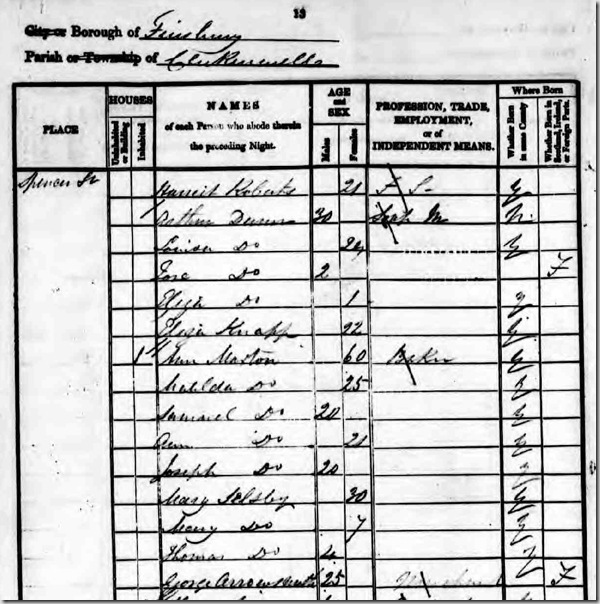 13
City or Borough of Finsbury
Parish or Township of Clerkenwell
PLACE
HOUSES
Uninhabited or Building
Inhabited
NAMES of each Person who abode therein the preceding Night.
AGE and SEX
Males
Females
PROFESSION, TRADE, EMPLOYMENT, or of INDEPENDENT MEANS.
Where Born
Whether Born in same County
Whether Born in Scotland, Ireland, or Foreign Parts.
Spencer St Harriet Roberts 21 F S y
Arthur 30 M n
Louisa Do y
Do 2 F
Eliza Do 1 y
Eliza Knapp y
1 Ann Morton 60 Baker y
Matilda Do 25 y
Samuel Do 20 y
Ann Do 20 y
Joseph Do 20 y
Mary Selsby 30 y
Mary Do 7 y
Thomas Do 4 y
George Arrowsmith 25 F